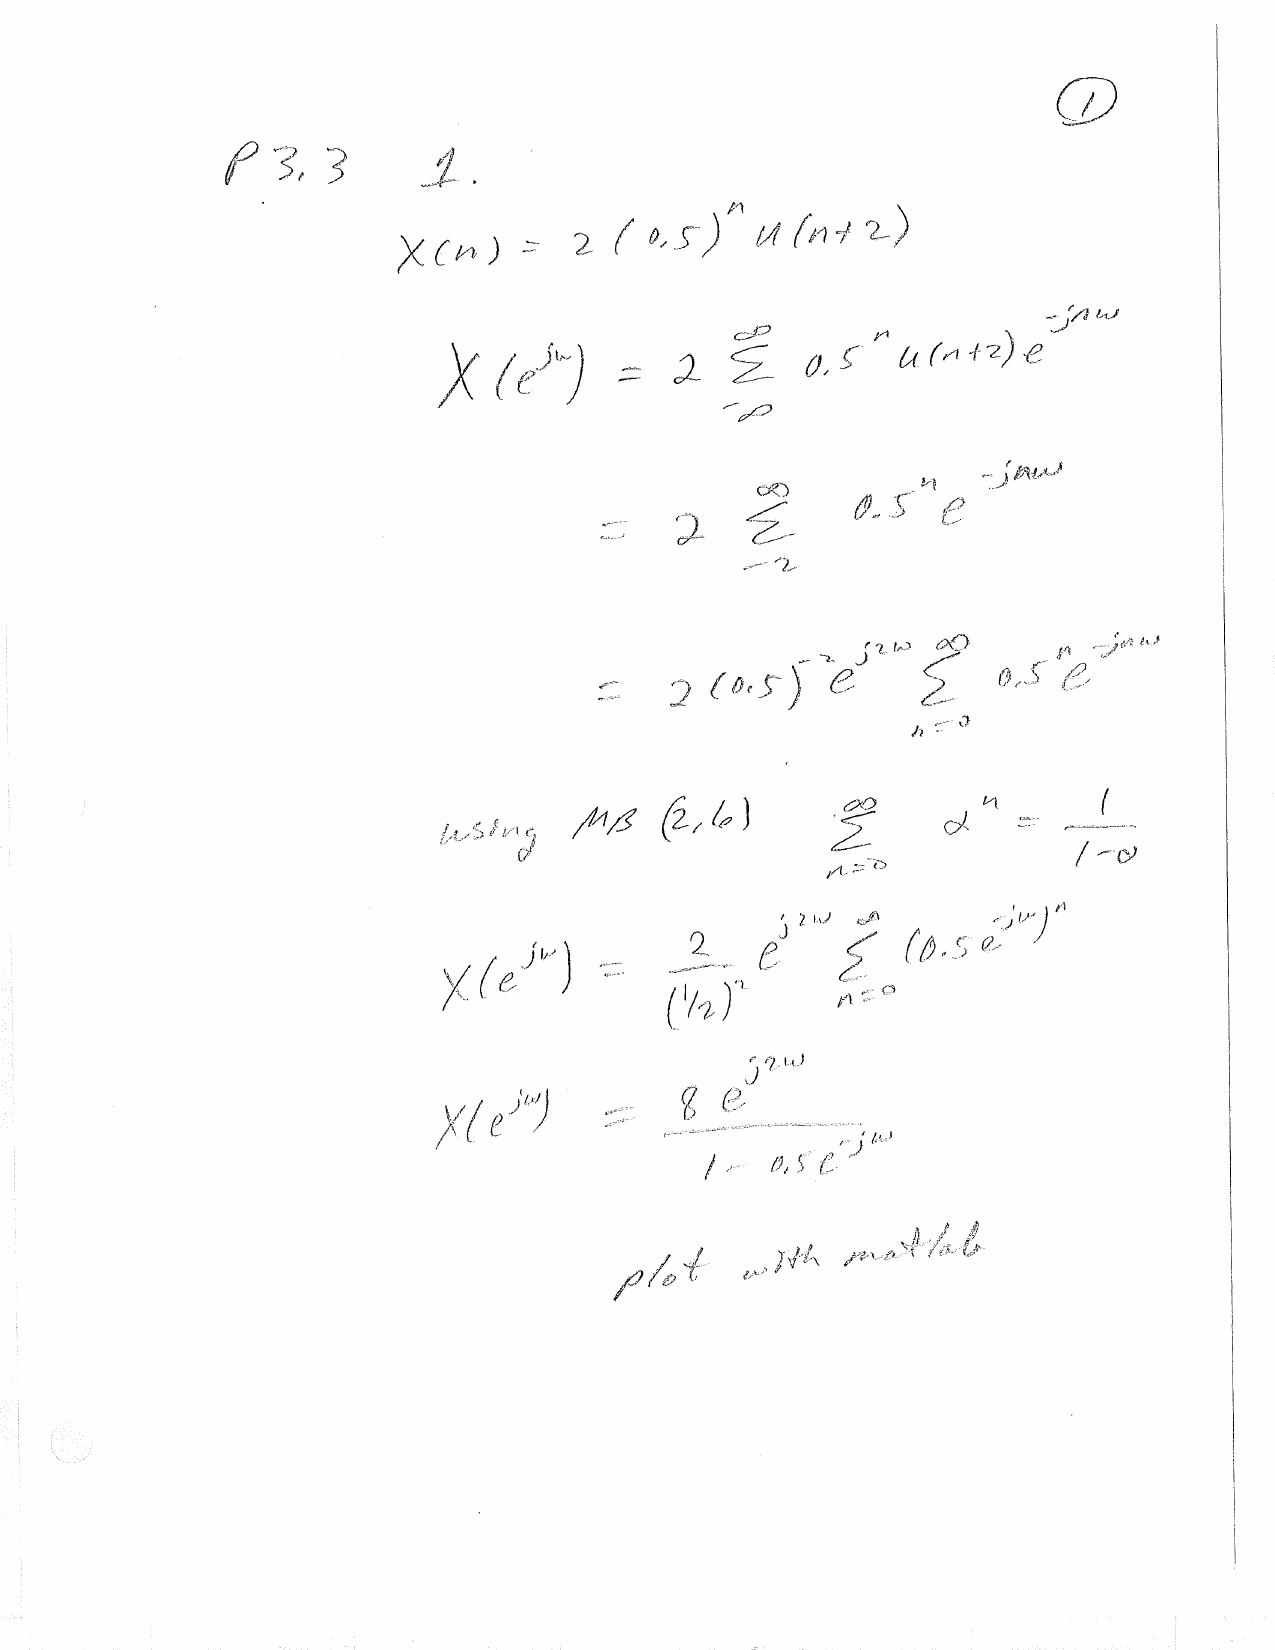 ①
P 3.3 1.
X(n) = 2(0.5)^n u(n+2)
X(e^{jω}) = 2 Σ_{-∞}^{∞} 0.5^n u(n+2) e^{-jnω}
= 2 Σ_{-2}^{∞} 0.5^n e^{-jnω}
= 2(0.5)^{-2} e^{j2ω} Σ_{n=0}^{∞} 0.5^n e^{-jnω}
using MB (2,6) Σ_{n=0}^{∞} α^n = 1/(1-α)
X(e^{jω}) = 2/(1/2)^2 e^{j2ω} Σ_{n=0}^{∞} (0.5e^{-jω})^n
X(e^{jω}) = 8e^{j2ω}/(1 - 0.5e^{-jω})
plot with matlab